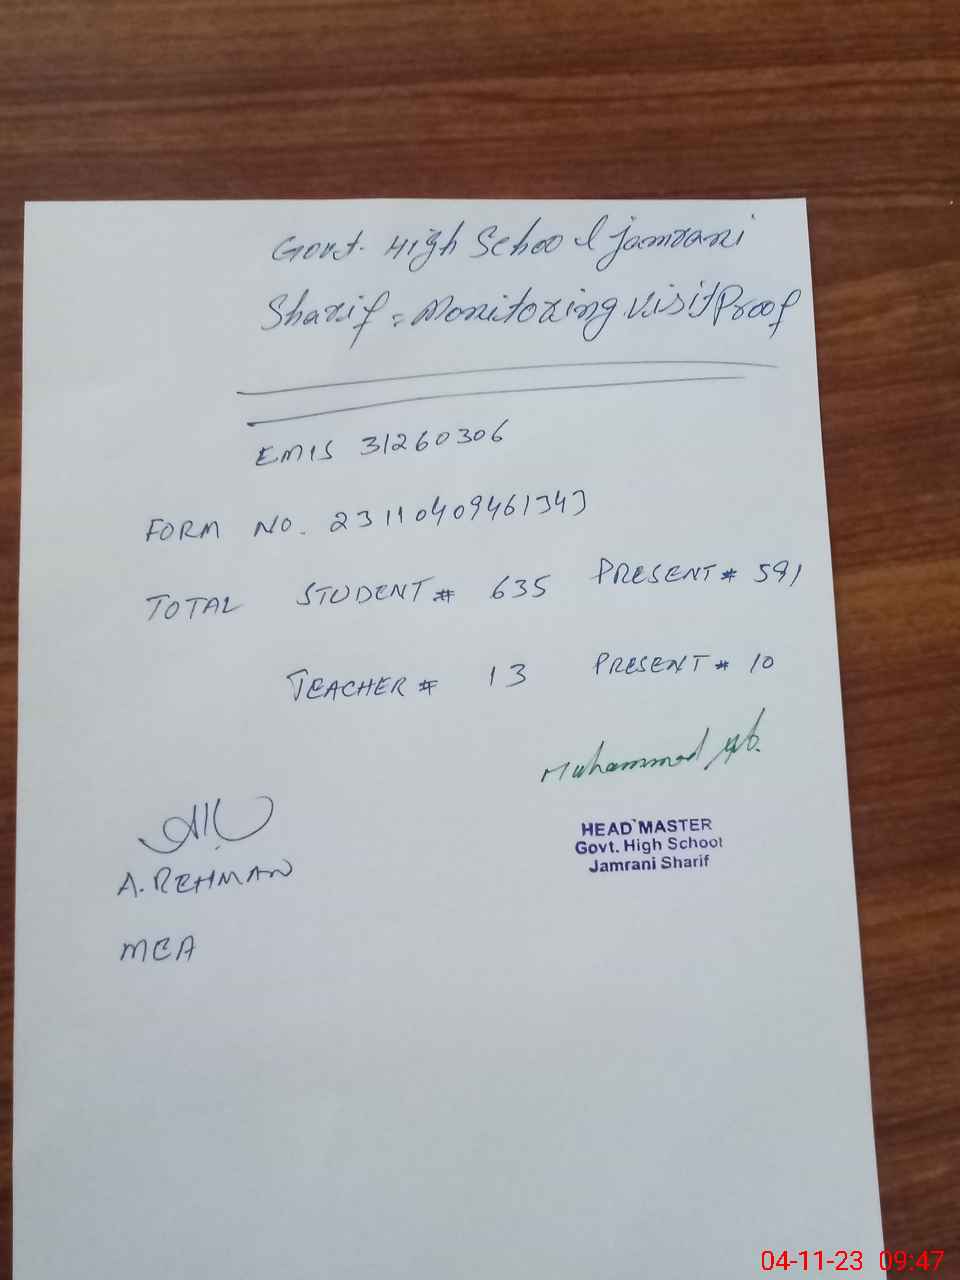 Govt. High School Jamrani
Sharif = Monitoring Visit Proof
EMIS 31260306
FORM NO. 23110409461343
TOTAL STUDENT # 635 PRESENT # 591
TEACHER # 13 PRESENT # 10
Muhammad
A. REHMAN
MEA
HEAD MASTER
Govt. High School
Jamrani Sharif
04-11-23 09:47